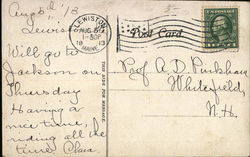 Aug 5" '13
Lewiston
Will go to
Jackson on
Thursday
Having a
nice time,
riding all the
time Clara
LEWISTON
AUG 5
1-30P
1913
MAINE
THIS SIDE FOR MESSAGE.
Post Card
Prof A. D. Pinkham
Whitefield
N.H.